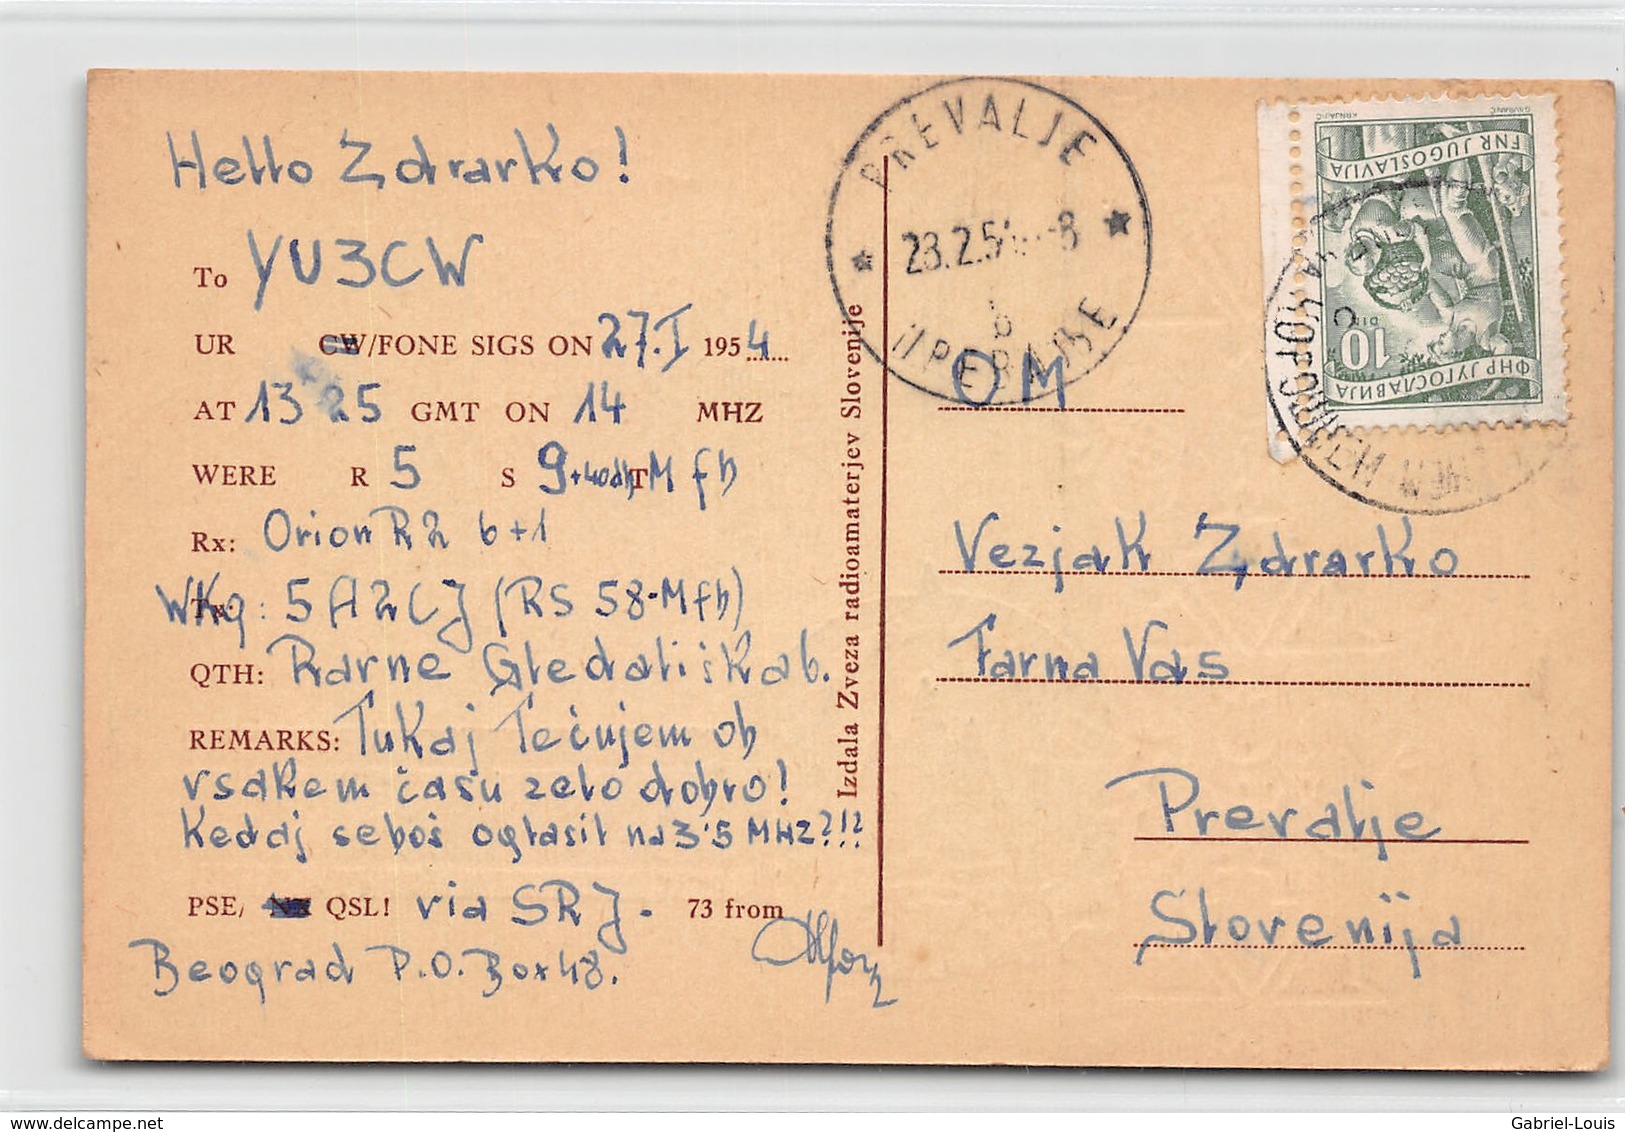 Hello Zdravko!
To YU3CW
UR CW/FONE SIGS ON 27.I 1954
AT 1325 GMT ON 14 MHZ
WERE R 5 S 9+40db T M fb
Rx: Orion R2 6+1
Wkg: 5A2CJ (RS 58-Mfb)
QTH: Ravne Gledališka 6.
REMARKS: Tukaj Te čujem ob
vsakem času zelo dobro!
Kedaj seboš oglasil na 3'5 MHZ?!?
PSE, QSL! via SRJ. 73 from
Beograd P.O. Box 48.
Izdala Zveza radioamaterjev Slovenije
PREVALJE
23.2.54 -8
b
ПРЕВАЉЕ
OM
Vezjak Zdravko
Farna Vas
Prevalje
Slovenija
FNR JUGOSLAVIJA
10
DIN
ФНР ЈУГОСЛАВИЈА
KRNJAJIĆ
Gabriel-Louis
www.delcampe.net